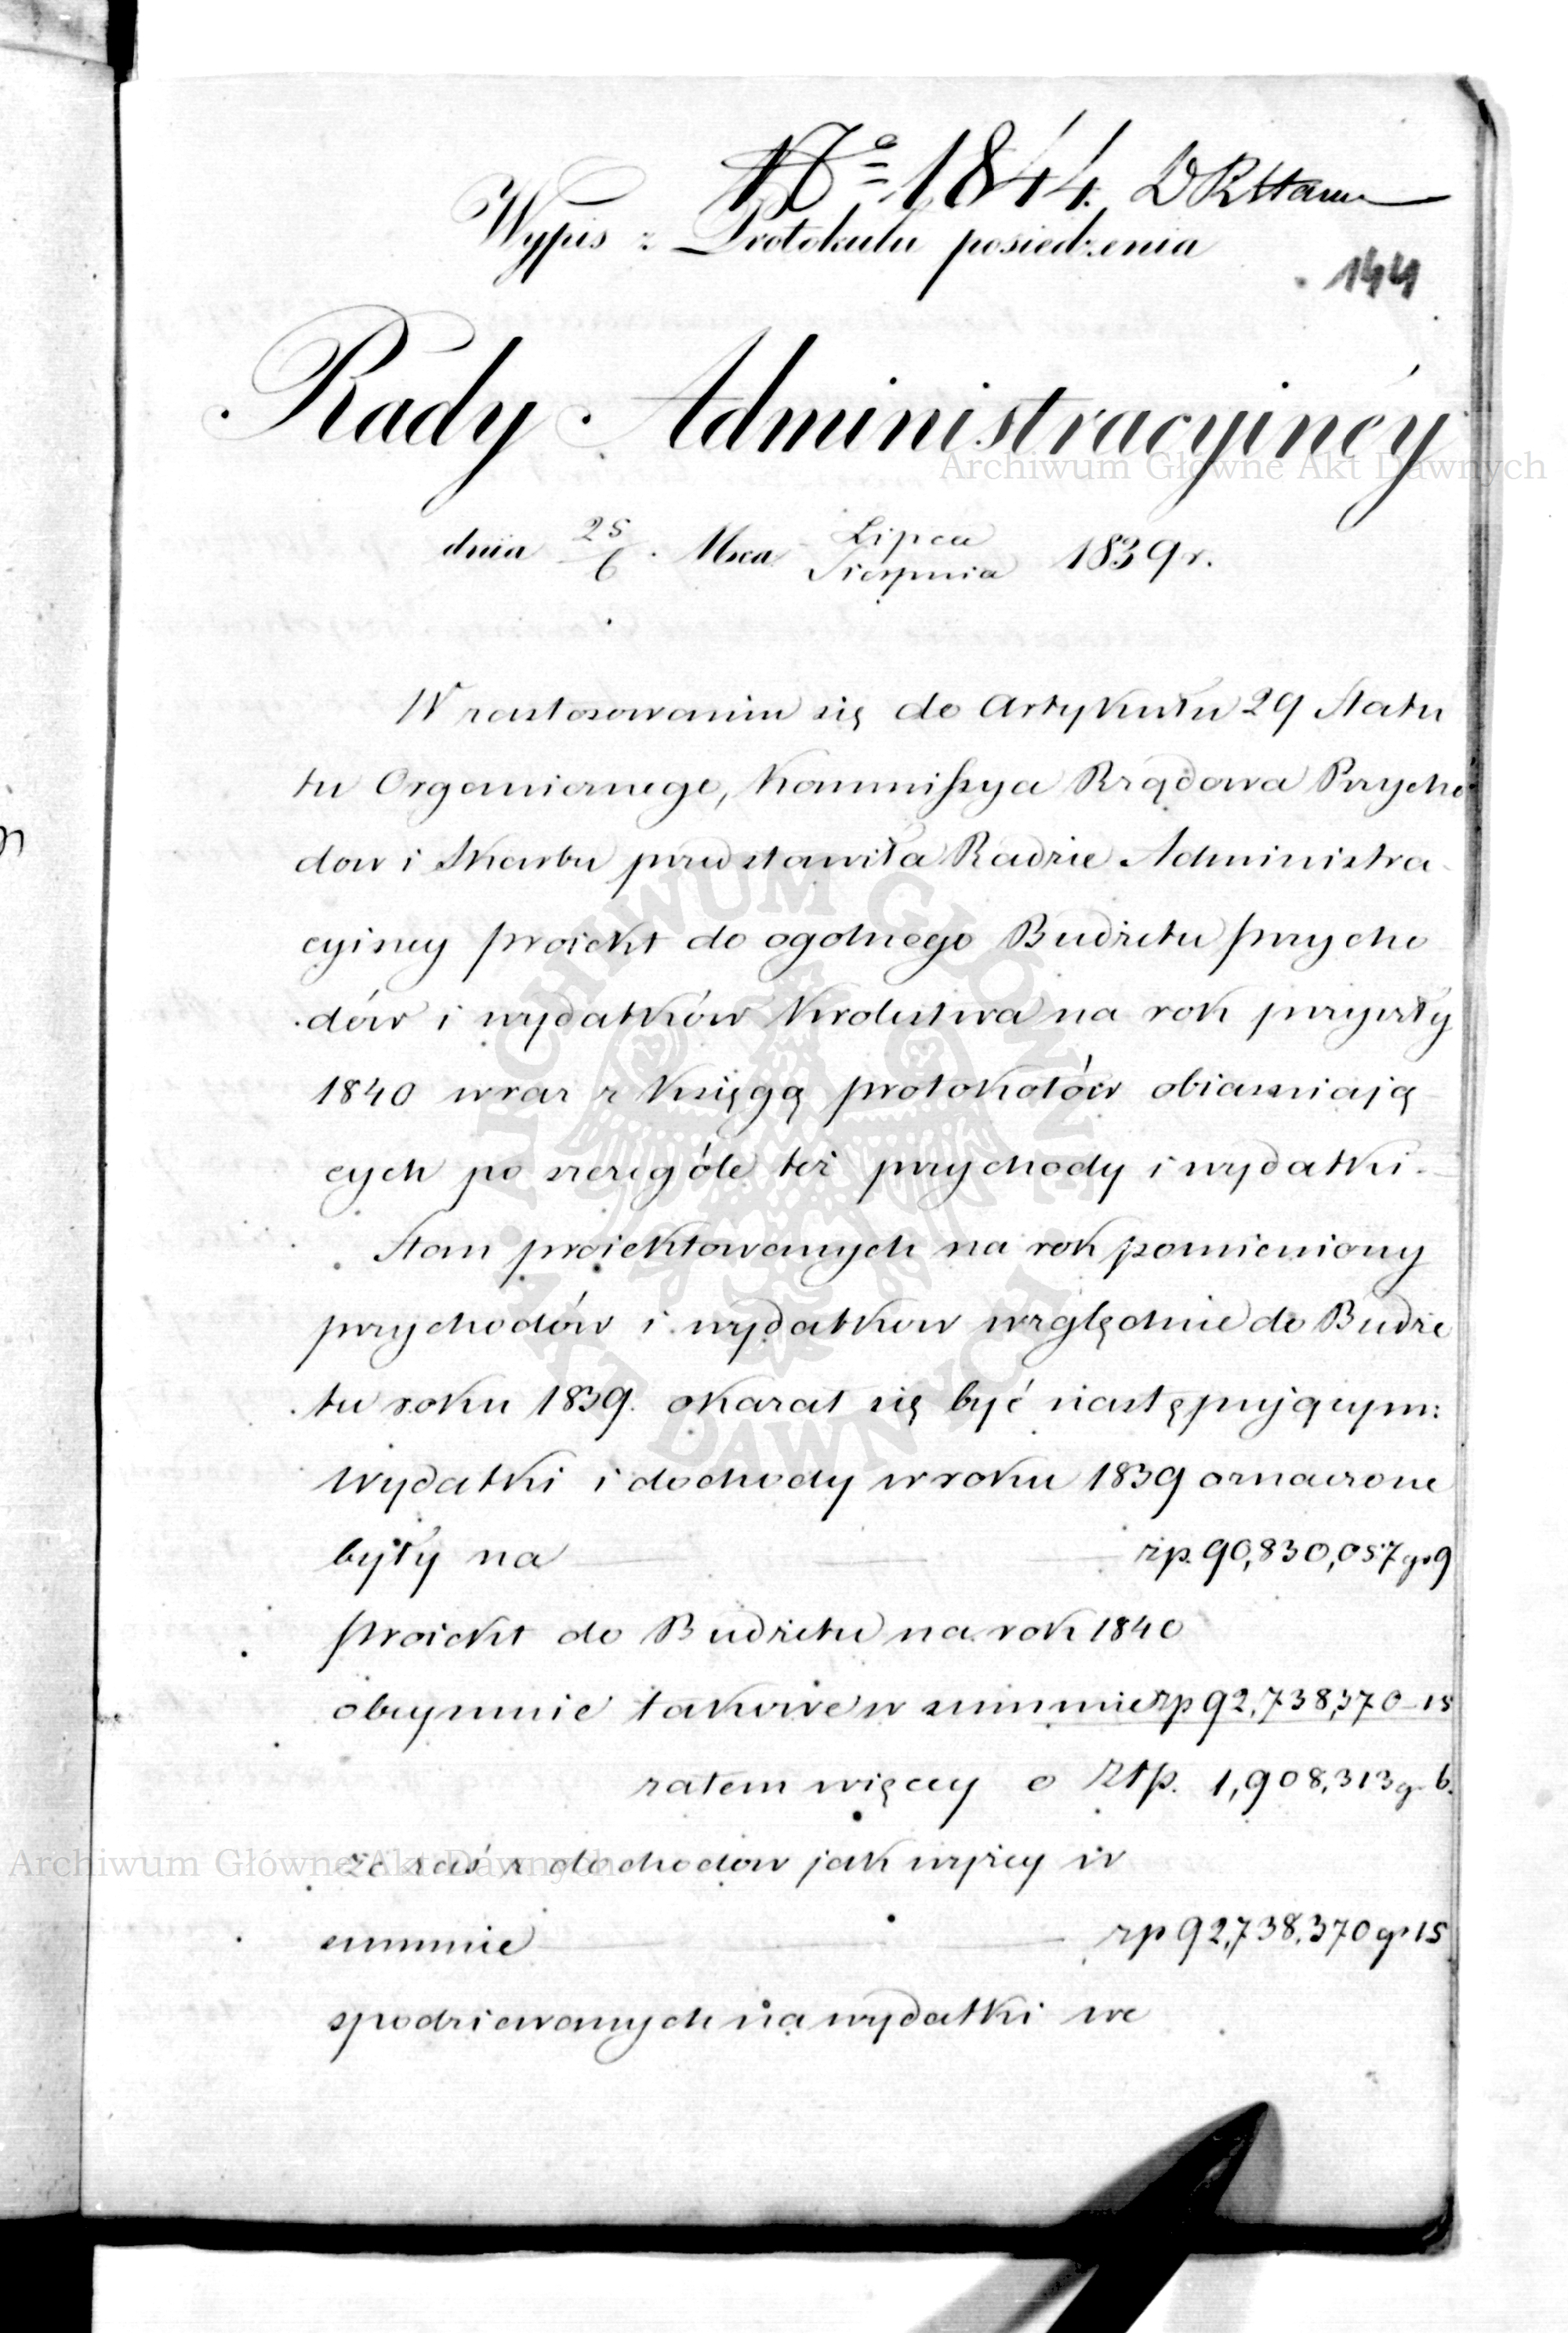 Nº 1844. D R Stanu
Wypis z Protokułu posiedzenia
144
Rady Administracyinéy
Archiwum Główne Akt Dawnych
dnia 25/6 Msca Lipca/Sierpnia 1839 r.
W zastosowaniu się do Artykułu 29 Statu
tu Organicznego, Kommissya Rządowa Przycho
dow i Skarbu przedstawiła Radzie Administra
cyiney proiekt do ogolnego Budżetu przycho
dów i wydatków Krolestwa na rok przyszły
1840 wraz z Księgą protokołów obiasniają
cych po szczególe też przychody i wydatki.
Stan proiektowanych na rok pomieniony
przychodów i wydatkow względnie do Budże
tu roku 1839. okazał się być następującym:
Wydatki i dochody w roku 1839 oznaczone
były na złp. 90,830,057 gr 9
proiekt do Budżetu na rok 1840
obeymuie takowe w summie złp 92,738,370 – 15
zatem więcey o Złp. 1,908,313 gr 6.
Że zaś z dochodow jak wyżey w
Archiwum Główne Akt Dawnych
summie złp 92,738,370 gr 15
spodziewanych na wydatki we
ARCHIWUM GŁÓWNE
AKT DAWNYCH